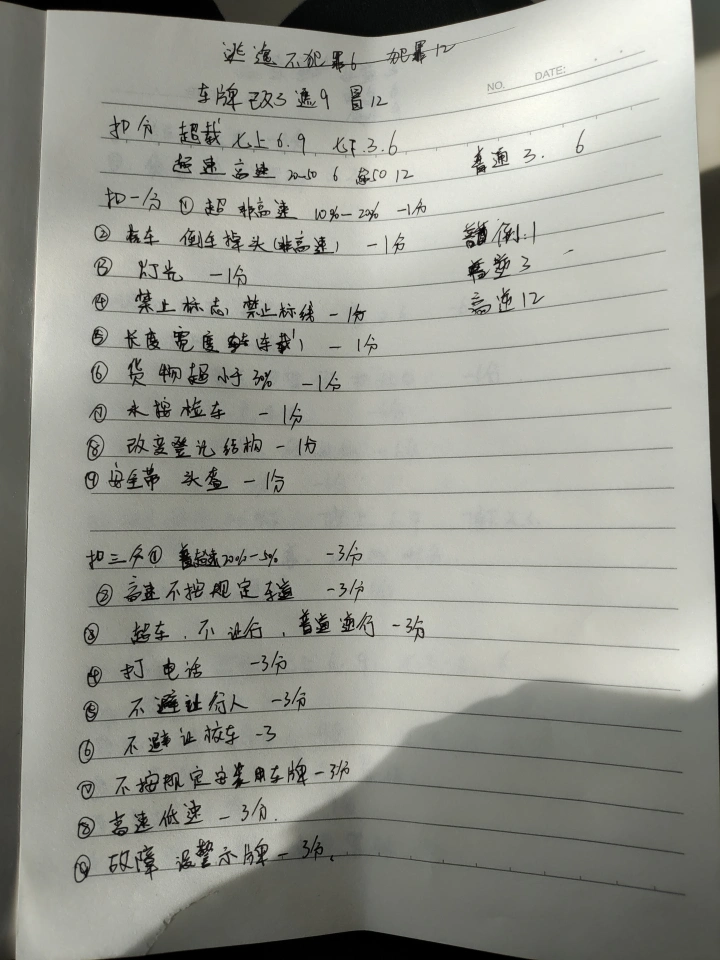 逃逸不犯罪6 犯罪12
NO. DATE:
车牌改3 遮9 冒12
扣分 超载 七上6.9 七下.3.6
超速 高速 20-50 6 50 12 普通 3. 6
扣一分 ① 超 非高速 10%-20% -1分
② 车 倒车掉头(非高速) -1分 倒:1
③ 灯光 -1分 普逆3
④ 禁止标志,禁止标线 -1分 高逆12
⑤ 长度 宽度 连载 -1分
⑥ 货物超小于30% -1分
⑦ 未按检车 -1分
⑧ 改变登记结构 -1分
⑨ 安全带 头盔 -1分
扣三分① 普超速20%-50% -3分
② 高速不按规定车道 -3分
③ 超车.不让行,普通逆行 -3分
④ 打电话 -3分
⑤ 不避让行人 -3分
⑥ 不避让校车 -3
⑦ 不按规定安装车牌 -3分
⑧ 高速低速 -3分.
⑨ 故障 设警示牌 -3分.